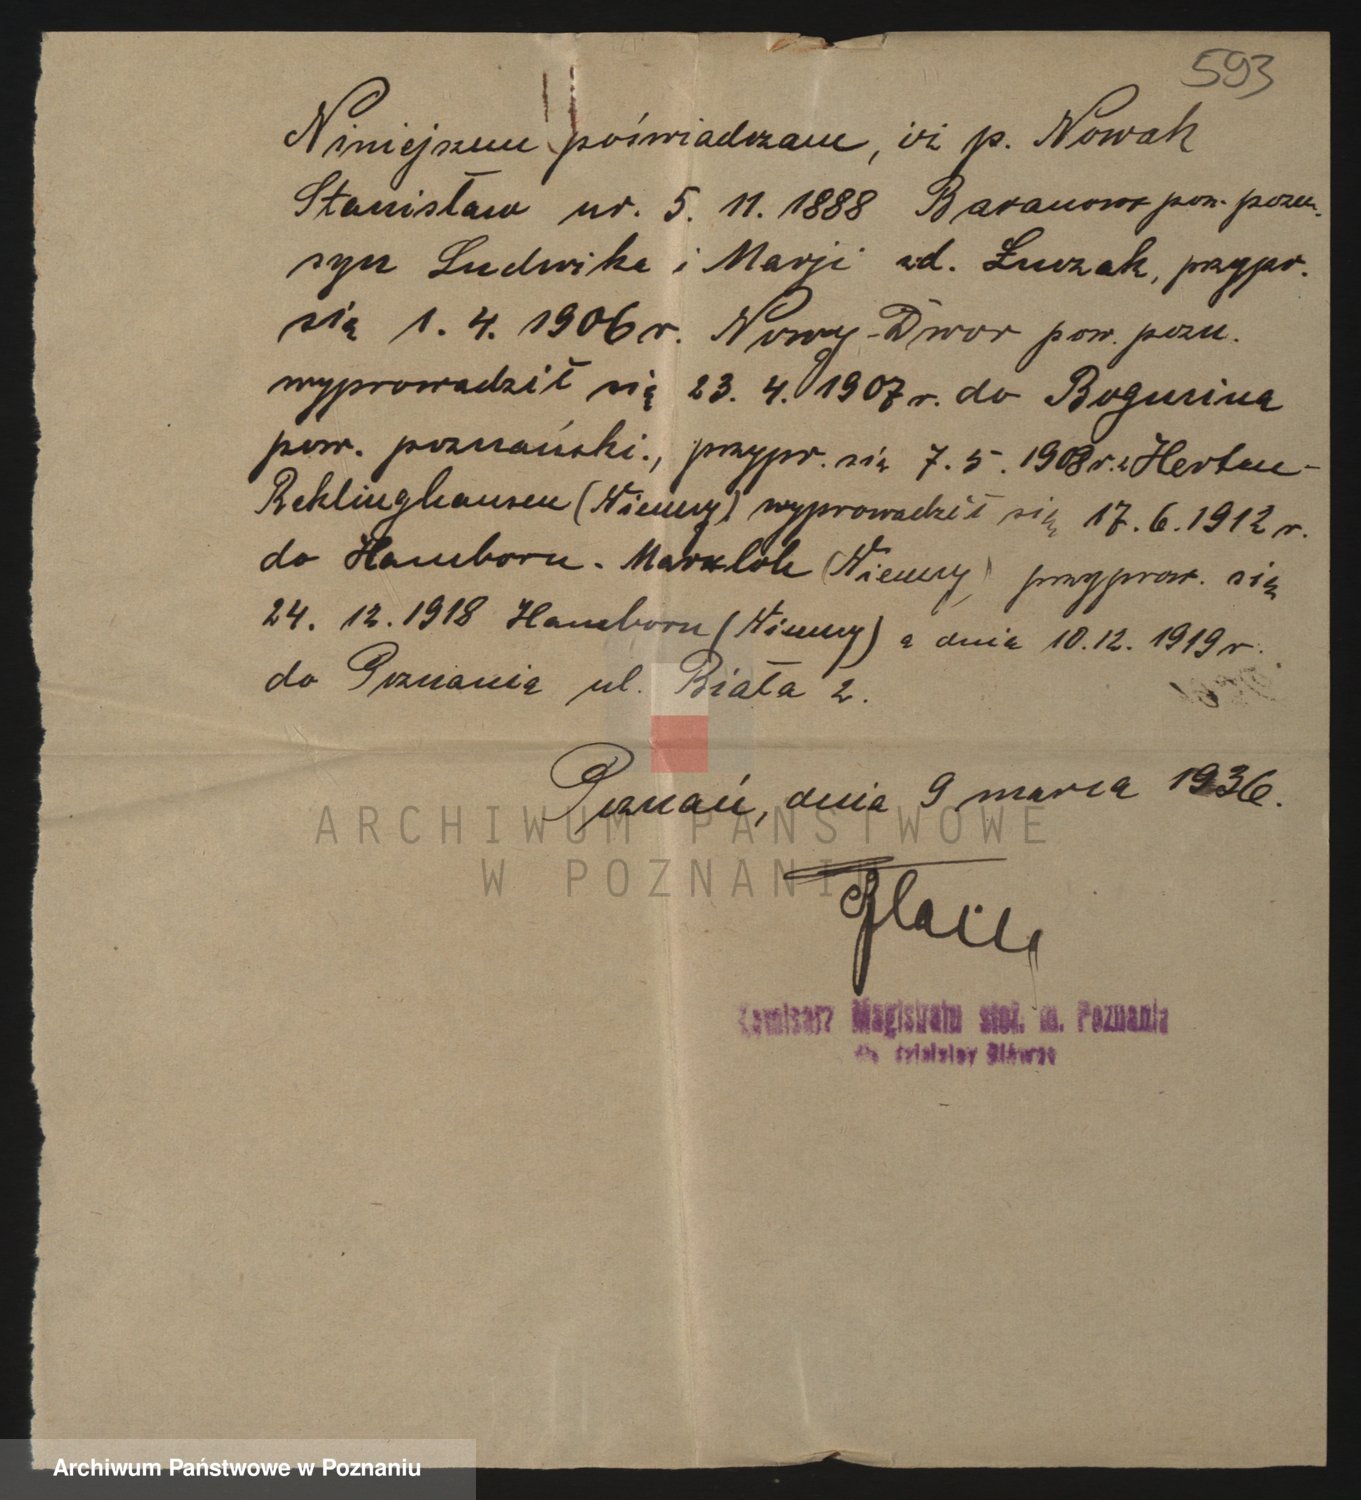 593
Niniejszem poświadczam, iż p. Nowak
Stanisław ur. 5. 11. 1888 Baranowo pow. pozn.
syn Ludwika i Marji zd. Łuczak, przypr.
się 1. 4. 1906 r. Nowy-Dwór pow. pozn.
wyprowadził się 23. 4. 1907 r. do Bogucina
pow. poznański., przypr. się 7. 5. 1908 r. z Herten-
Reklinghausen (Niemcy) wyprowadził się 17. 6. 1912 r.
do Hamborn. Marxloh (Niemcy) przyprow. się
24. 12. 1918 Hamborn (Niemcy) a dnia 10. 12. 1919 r.
do Poznania ul. Biała 2.
Poznań, dnia 9 marca 1936.
ARCHIWUM PAŃSTWOWE
W POZNANIU
Komisarz Magistratu stoł. m. Poznania
Archiwum Państwowe w Poznaniu